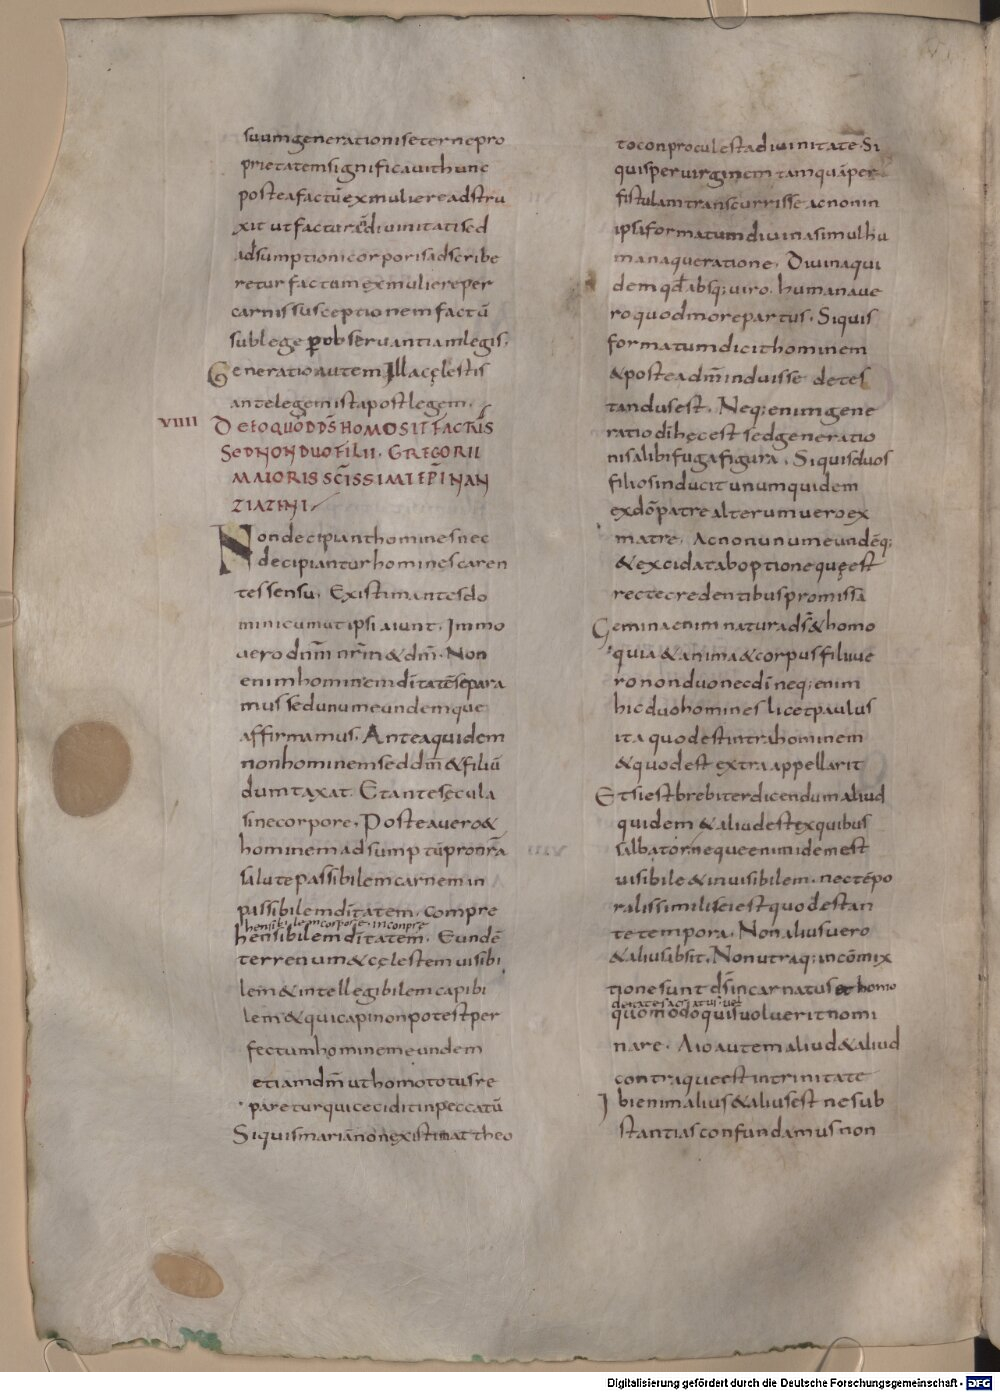 suumgenerationiseternepro
prietatemsignificauithunc
posteafactūexmuliereadstru
xit utfacturędiuinitatised
adsumptionicorporisadscribe
retur factumexmuliereper
carnissusceptionemfactū
sublege ꝑobseruantiamlegis.
Generatioautem Illacęlestis
antelegem istapostlegem.
VIIII De eo quod d̄s homo sit factus
sed non duo filii. Gregorii
maioris sc̄issimi ep̄i nan
ziazeni
Nondecipianthominesnec
decipianturhominescaren
tessensu. Existimantesdo
minicumutipsiaiunt. Immo
uero dn̄m nr̄m & dm̄. Non
enimhominemditatesepara
mussedunumeundemque
affirmamus. Anteaquidem
nonhominemseddm̄&filiū
dumtaxat. Etantesecula
sinecorpore. Posteauero&
hominemadsumptūpronr̄a
salutepassibilemcarnemin
passibilemditatem. Compre
hensibilemcorpore. inconpre
hensibilemditatem. Eundē
terrenum&cęlestemuisibi
lem&intellegibilemcapibi
lem&quicapinonpotestper
fectumhominemeundem
etiamdm̄uthomototusre
pareturquiceciditinpeccatū
Siquismarianonexistimat theo
toconproculestadiuinitate. Si
quisperuirginem tamquāper
fistulamtranscurrisse acnonin
ipsiformatumdiuinasimulhu
manaqueratione. Diuinaqui
dem qđabsq; uiro. humanaue
roquodmorepartus. Siquis
formatumdicithominem
&posteadm̄induisse detes
tandusest. Neq;enimgene
ratiodīhęcest sedgeneratio
nisalibifugafigura. Siquisduos
filiosinducitunumquidem
exdōpatrealterumueroex
matre. Acnonunumeundēq;
&excidatabobtionequęest
rectecredentibuspromissa
Geminaenimnaturads̄&homo
quia&anima&corpusfiliiue
rononduonecdīneq;enim
hicduohomineslicetpaulus
itaquodestintrahominem
&quodestextraappellarit
Etsiestbrebiterdicendumaliud
quidem&aliudestexquibus
salbatornequeenimidemest
uisibile&inuisibilem. nectēpo
ralissimiliseiestquodestan
tetempora. Nonaliusuero
&aliusibsit. Nonutraq;incōmix
tionesunt ds̄incarnatus et homo
quomodoquisuolueritnomi
nare. Aioautemaliud&aliud
contraqueestintrinitate
Ibienimalius&aliusest nesub
stantiasconfundamusnon
Digitalisierung gefördert durch die Deutsche Forschungsgemeinschaft - DFG